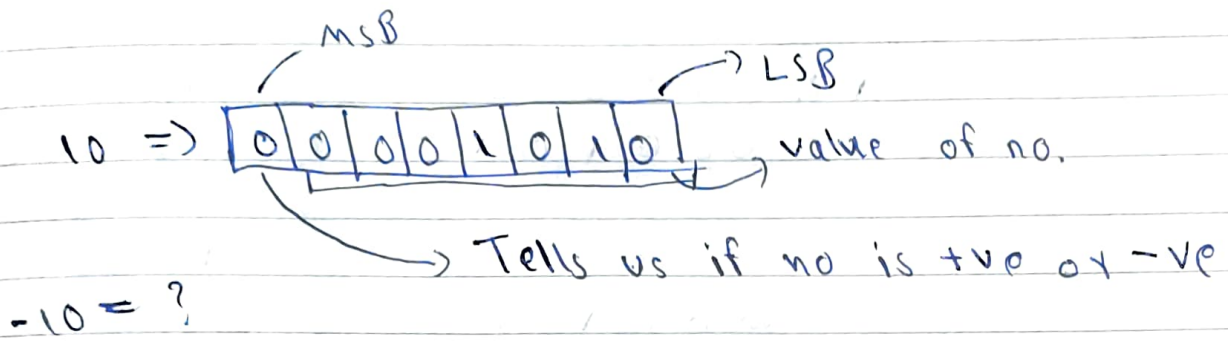 MSB
LSB
10 => 0 0 0 0 1 0 1 0 value of no.
Tells us if no is +ve or -ve
-10 = ?